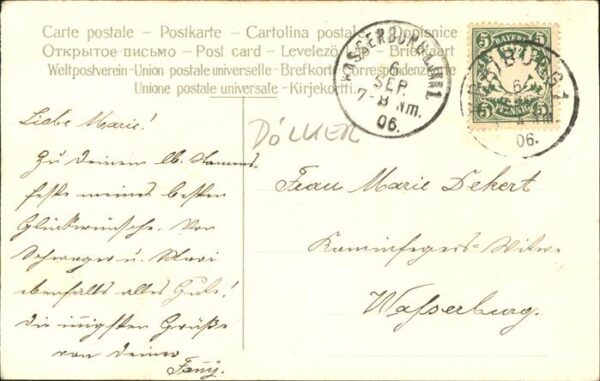 Carte postale – Postkarte – Cartolina postale – Dopisnice
Открытое письмо – Post card – Levelező – Briefkaart
Weltpostverein – Union postale universelle – Brefkort – Correspondenzkarte
Unione postale universale – Kirjekortti
WASSERBURG a/INN 1.
6
SEP.
7-8 Nm.
06.
5 BAYERN 5
5 PFENNIG 5
6
06.
DÖLLIER
Liebe Marie!
Zu Deinem lb. Namens-
feste meines besten
Glückwünsche. Von
Schwager u. Mari
ebenfalls alles Gute!
Die innigsten Grüße
von Deiner
Fanny.
Frau Marie Dekert
Kaminfegers-Witwe
Wasserburg.